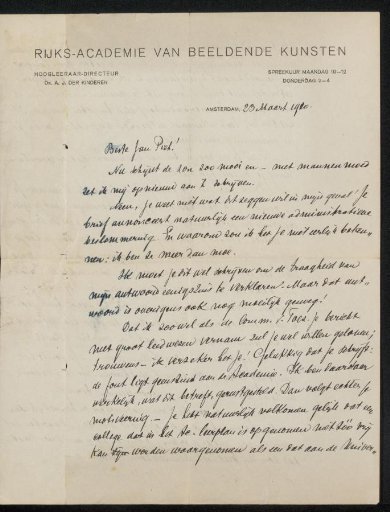 RIJKS-ACADEMIE VAN BEELDENDE KUNSTEN
HOOGLEERAAR-DIRECTEUR
Dr. A. J. DER KINDEREN
SPREEKUUR MAANDAG 10-12
DONDERDAG 2-4
AMSTERDAM, 23 Maart 1920.
Beste Jan Piet!
Nu schijnt de zon zoo mooi en - met mannenmoed
zet ik mij opnieuw aan 't schrijven.
Neen, je weet niet wat dit zeggen wil in mijn geval! Je
brief annonceert natuurlijk een nieuwe administratieve
bekommernis. En waarom zou ik het je niet eerlijk beken-
nen: ik ben ze meer dan moe.
Ik moet je dit wel schrijven om de traagheid van
mijn antwoord eenigszins te verklaren! Maar dat ant-
woord is overigens ook nog moeilijk genoeg!
Dat ik zoowel als de Comm. v. Toez. je bericht
met groot leedwezen vernam zul je wel willen gelooven;
trouwens - ik verzeker het je! Gelukkig dat je schrijft:
de fout ligt geenszins aan de Academie. Ik ben daardoor
werkelijk, wat dit betreft, gerustgesteld. Dan volgt echter je
motiveering - je hebt natuurlijk volkomen gelijk dat een
college dat in het leerplan is opgenomen niet zóó vrij
kan worden waargenomen als een dat aan de Univer-